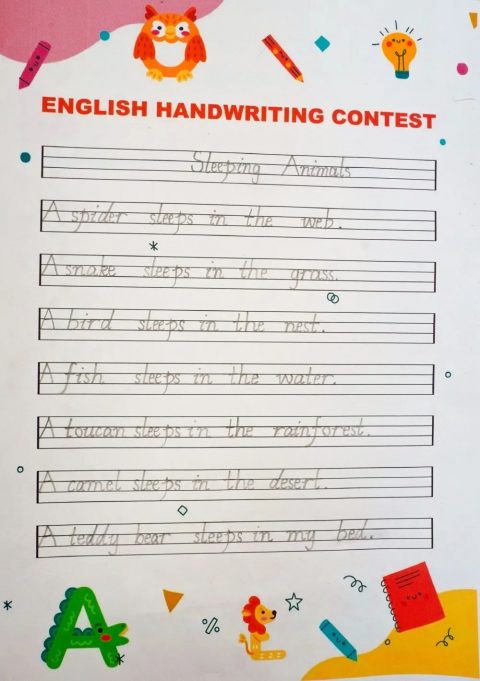 ENGLISH HANDWRITING CONTEST
Sleeping Animals
A spider sleeps in the web.
A snake sleeps in the grass.
A bird sleeps in the nest.
A fish sleeps in the water.
A toucan sleeps in the rainforest.
A camel sleeps in the desert.
A teddy bear sleeps in my bed.